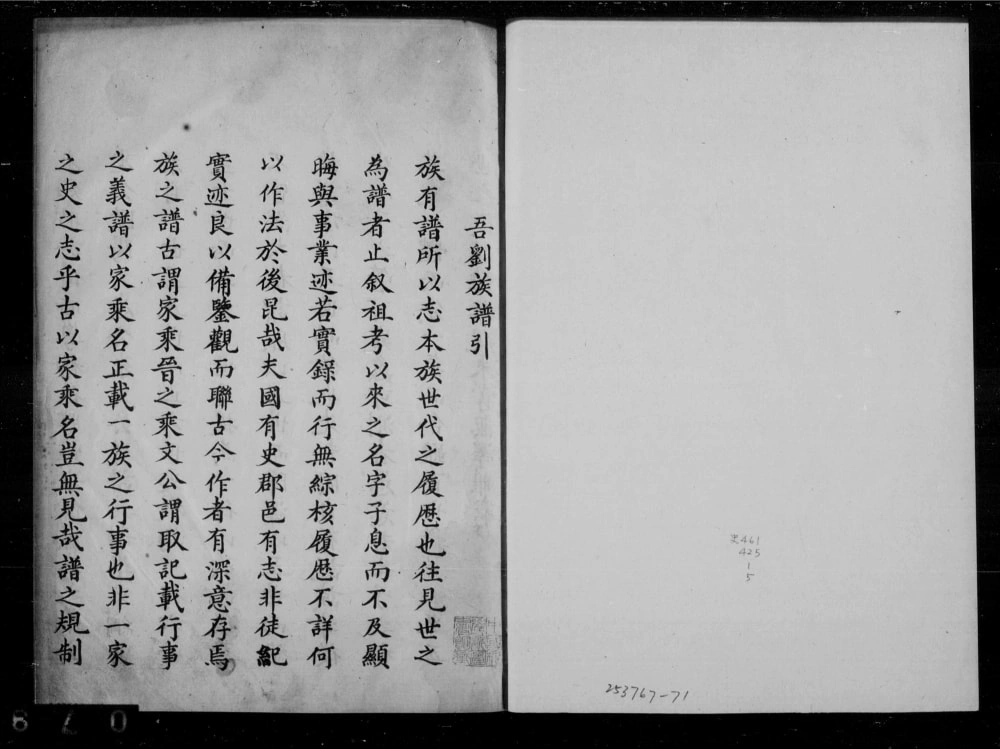 吾劉族譜引
族有譜所以志本族世代之履歷也往見世之
為譜者止叙祖考以來之名字子息而不及顯
晦與事業迹若實錄而行無綜核履歷不詳何
以作法於後昆哉夫國有史郡邑有志非徒紀
實迹良以備鑒觀而聯古今作者有深意存焉
族之譜古謂家乘晉之乘文公謂取記載行事
之義譜以家乘名正載一族之行事也非一家
之史之志乎古以家乘名豈無見哉譜之規制
史461
425
1
5
253767-71
078